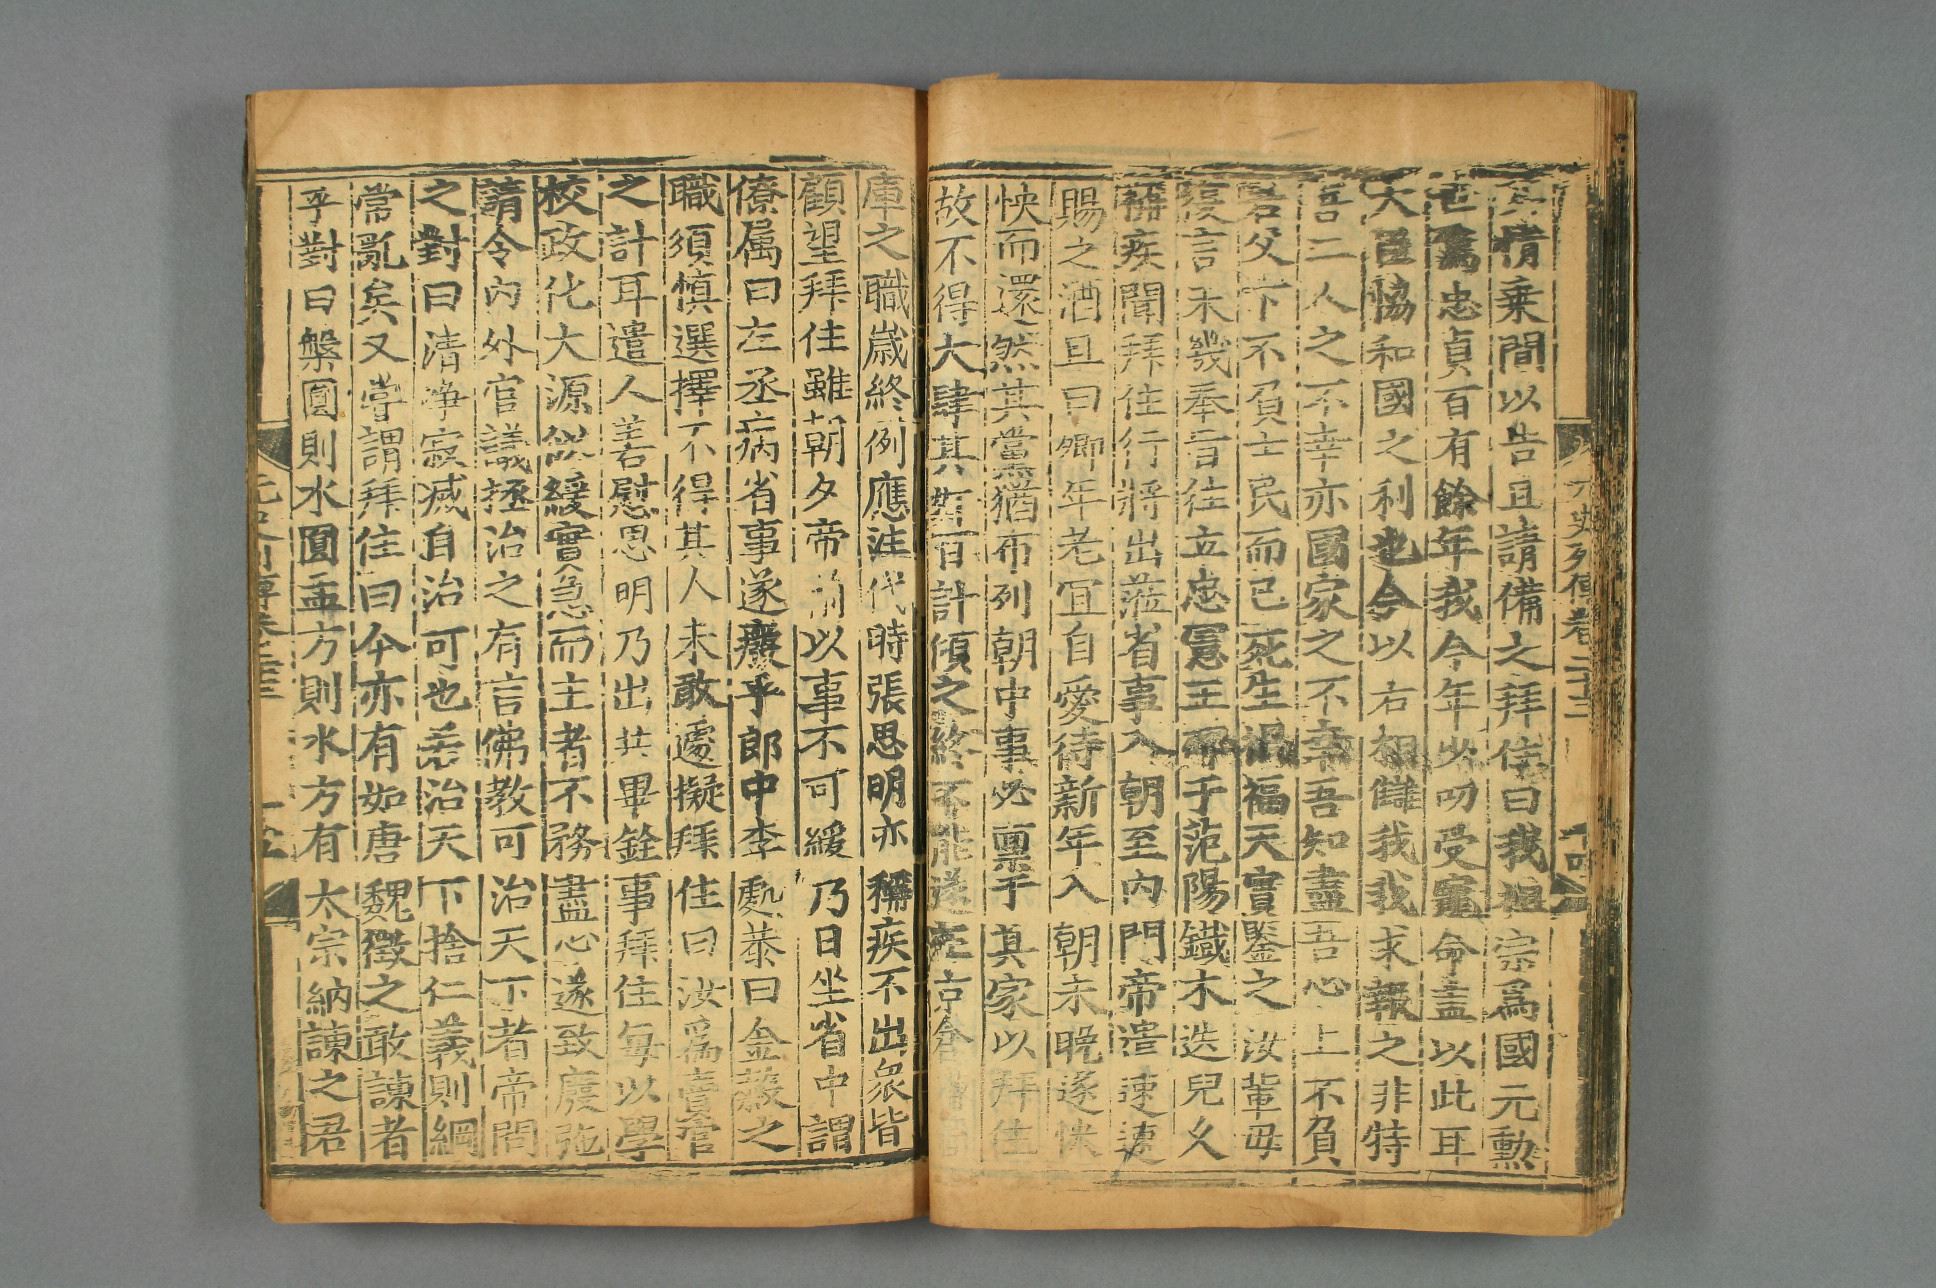 元史列傳卷二十三
十四
其情乗間以告且請備之拜住曰我祖宗爲國元勲
世篤忠貞百有餘年我今年少叨受寵命盖以此耳
大臣恊和國之利也今以右相讎我我求報之非特
吾二人之不幸亦國家之不幸吾知盡吾心上不負
君父下不負士民而已死生禍福天實鑒之汝輩毋
復言未幾奉旨往立忠憲王碑于范陽鐵木迭兒久
稱疾聞拜住行將出蒞省事入朝至内門帝遣速速
賜之酒且曰卿年老冝自愛待新年入朝未晚遂怏
怏而還然其黨猶布列朝中事必禀于其家以拜住
故不得大肆其奸百計傾之終不能遂在京倉
庫之職歳終例應注代時張思明亦稱疾不出衆皆
顧望拜住雖朝夕帝前以事不可緩乃日坐省中謂
僚属曰左丞病省事遂癈乎郎中李處恭曰金榖之
職須慎選擇不得其人未敢遽擬拜住曰汝爲賣官
之計耳遣人善慰思明乃出共畢銓事拜住每以學
校政化大源似緩實急而主者不務盡心遂致廢弛
請令内外官議拯治之有言佛教可治天下者帝問
之對曰清淨寂滅自治可也若治天下捨仁義則綱
常亂矣又嘗謂拜住曰今亦有如唐魏徵之敢諫者
乎對曰槃圓則水圓盂方則水方有太宗納諫之君
元史列傳卷二十三
十五